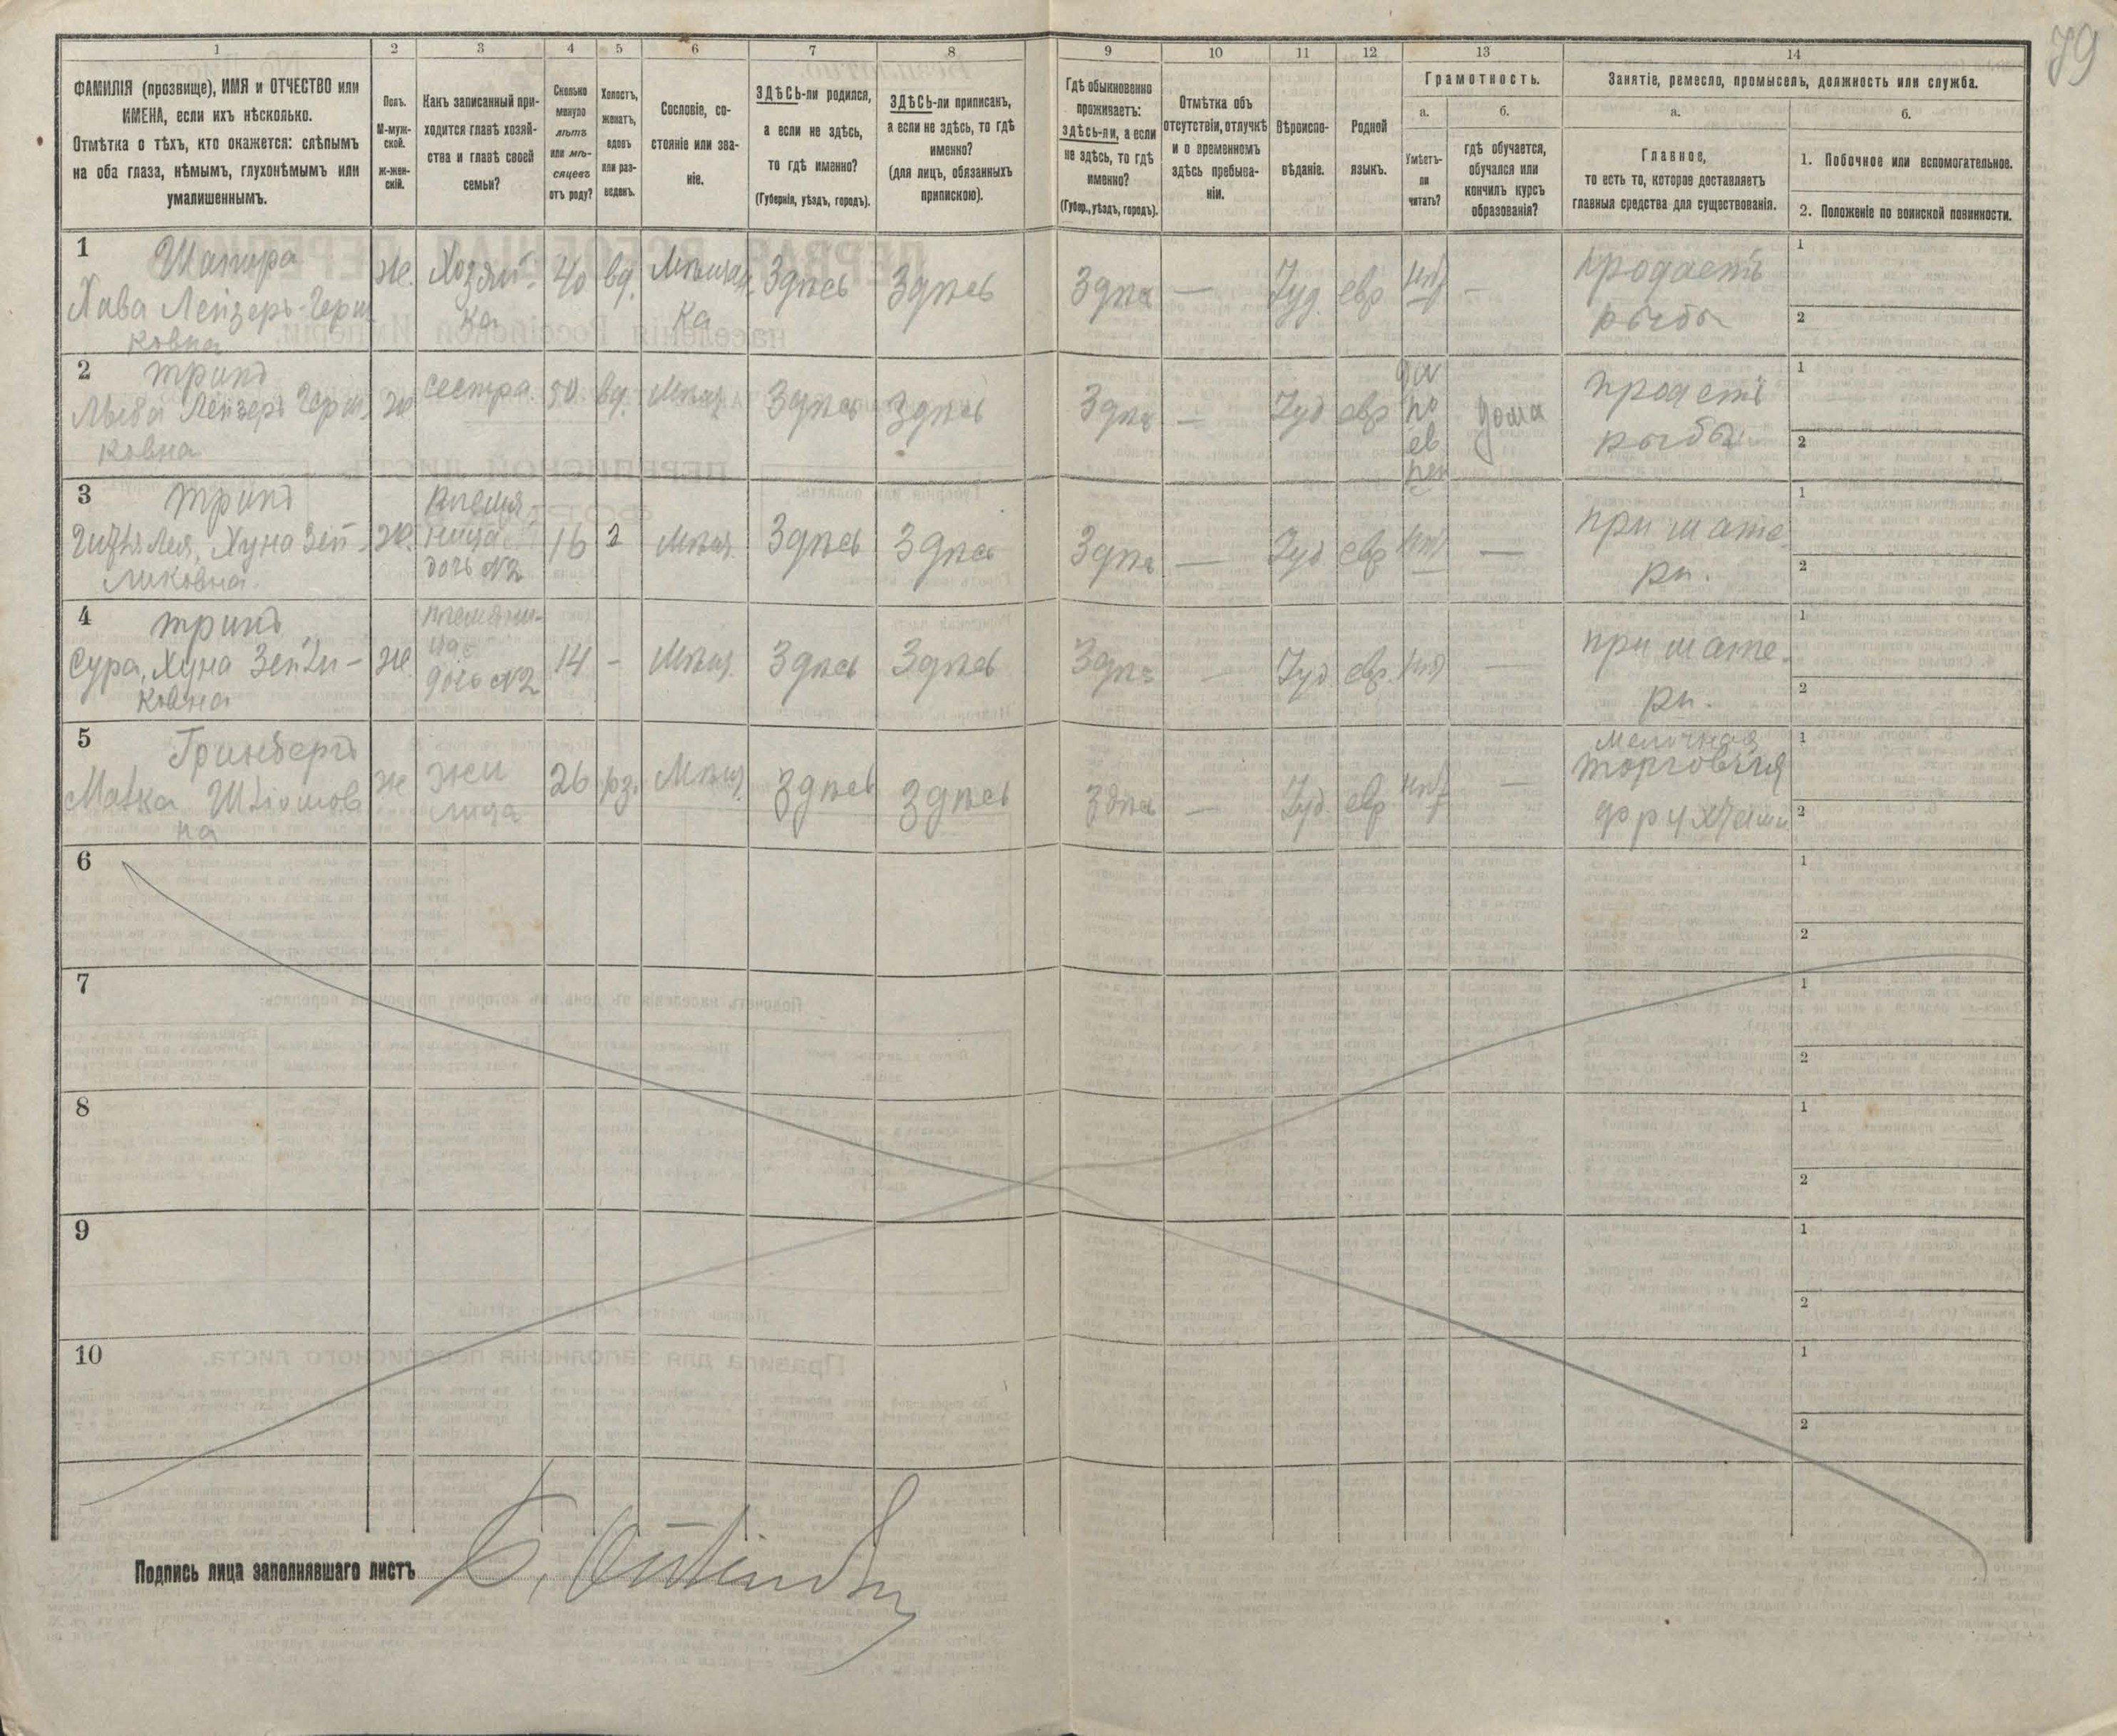 79
1 2 3 4 5 6 7 8 9 10 11 12 13 14
ФАМИЛІЯ (прозвище), ИМЯ и ОТЧЕСТВО или
ИМЕНА, если ихъ нѣсколько.
Отмѣтка о тѣхъ, кто окажется: слѣпымъ
на оба глаза, нѣмымъ, глухонѣмымъ или
умалишеннымъ.
Полъ.
М-муж-
ской.
Ж-жен-
скій.
Какъ записанный при-
ходится главѣ хозяй-
ства и главѣ своей
семьи?
Сколько
минуло
лѣтъ
или мѣ-
сяцевъ
отъ роду?
Холостъ,
женатъ,
вдовъ
или раз-
веденъ.
Сословіе, со-
стояніе или зва-
ніе.
ЗДѢСЬ-ли родился,
а если не здѣсь,
то гдѣ именно?
(Губернія, уѣздъ, городъ).
ЗДѢСЬ-ли приписанъ,
а если не здѣсь, то гдѣ
именно?
(для лицъ, обязанныхъ
припискою).
Гдѣ обыкновенно
проживаетъ:
здѣсь-ли, а если
не здѣсь, то гдѣ
именно?
(Губер., уѣздъ, городъ).
Отмѣтка объ
отсутствіи, отлучкѣ
и о временномъ
здѣсь пребыва-
ніи.
Вѣроиспо-
вѣданіе.
Родной
языкъ.
Грамотность.
а.
Умѣетъ-
ли
читать?
б.
гдѣ обучается,
обучался или
кончилъ курсъ
образованія?
Занятіе, ремесло, промыселъ, должность или служба.
а.
Главное,
то есть то, которое доставляетъ
главныя средства для существованія.
б.
1. Побочное или вспомогательное.
2. Положеніе по воинской повинности.
1 Шапира
Хава Лейзеръ-Герш
ковна
Ж. Хозяй-
ка
40 вд. Мѣщан-
ка
Здѣсь Здѣсь Здѣсь — Іуд. евр нѣт —
продаетъ
рыбы
1
2
2 Тринд
Лейзеръ Герш-
ковна
Ж сестра. 50 вд. Мѣщ. Здѣсь Здѣсь Здѣсь — Іуд евр
да
по
ев
рей
дома
продаетъ
рыбы
1
2
3 Тринд
Лея, Хуна Зей-
ликовна.
Ж. племян
ница
дочь №2
16 Мѣщ. Здѣсь Здѣсь Здѣсь — Іуд евр нѣт —
при мате-
ри.
1
2
4 Тринд
Сура, Хуна Зейли-
ковна
Ж. племянни-
ца
дочь №2
14 - Мѣщ. Здѣсь Здѣсь Здѣсь — Іуд. евр. нѣт —
при мате-
ри.
1
2
5 Гринбергъ
Малка Шліомов
на
Ж жи
лица
26 рз. Мѣщ. Здѣсь Здѣсь Здѣсь — Іуд. евр нѣт —
мелочная
торговля
фруктами
1
2
6
1
2
7
1
2
8
1
2
9
1
2
10
1
2
Подпись лица заполнявшаго листъ